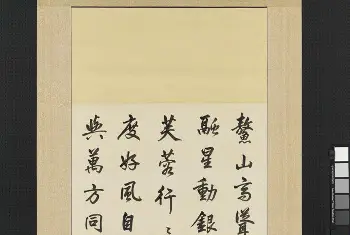 鰲山高聳
融星動銀
芙蓉行〻
度好風自
與萬方同